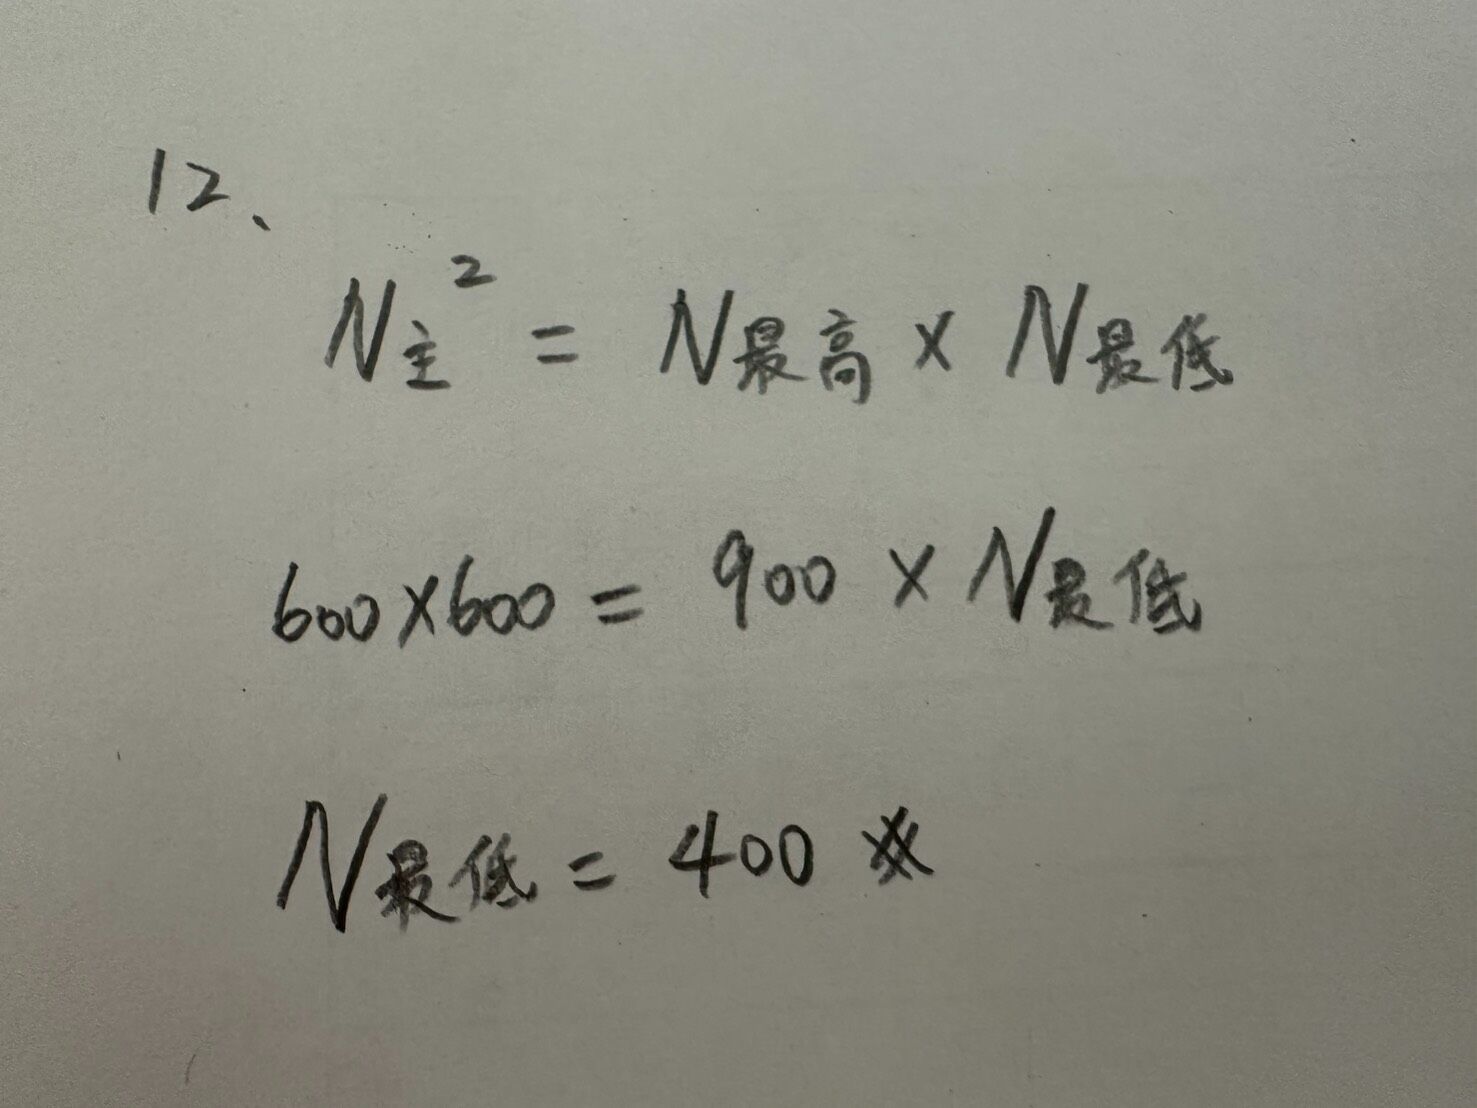 12、
N主² = N最高 × N最低
600×600 = 900 × N最低
N最低 = 400 ※